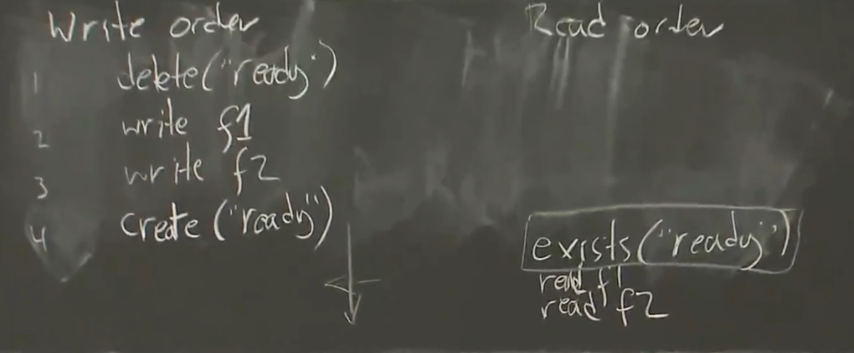 Write order
1 delete("ready")
2 write f1
3 write f2
4 create("ready")
Read order
exists("ready")
read f1
read f2